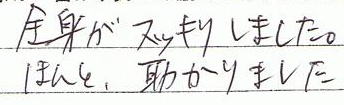 全身がスッキリしました。
ほんと、助かりました